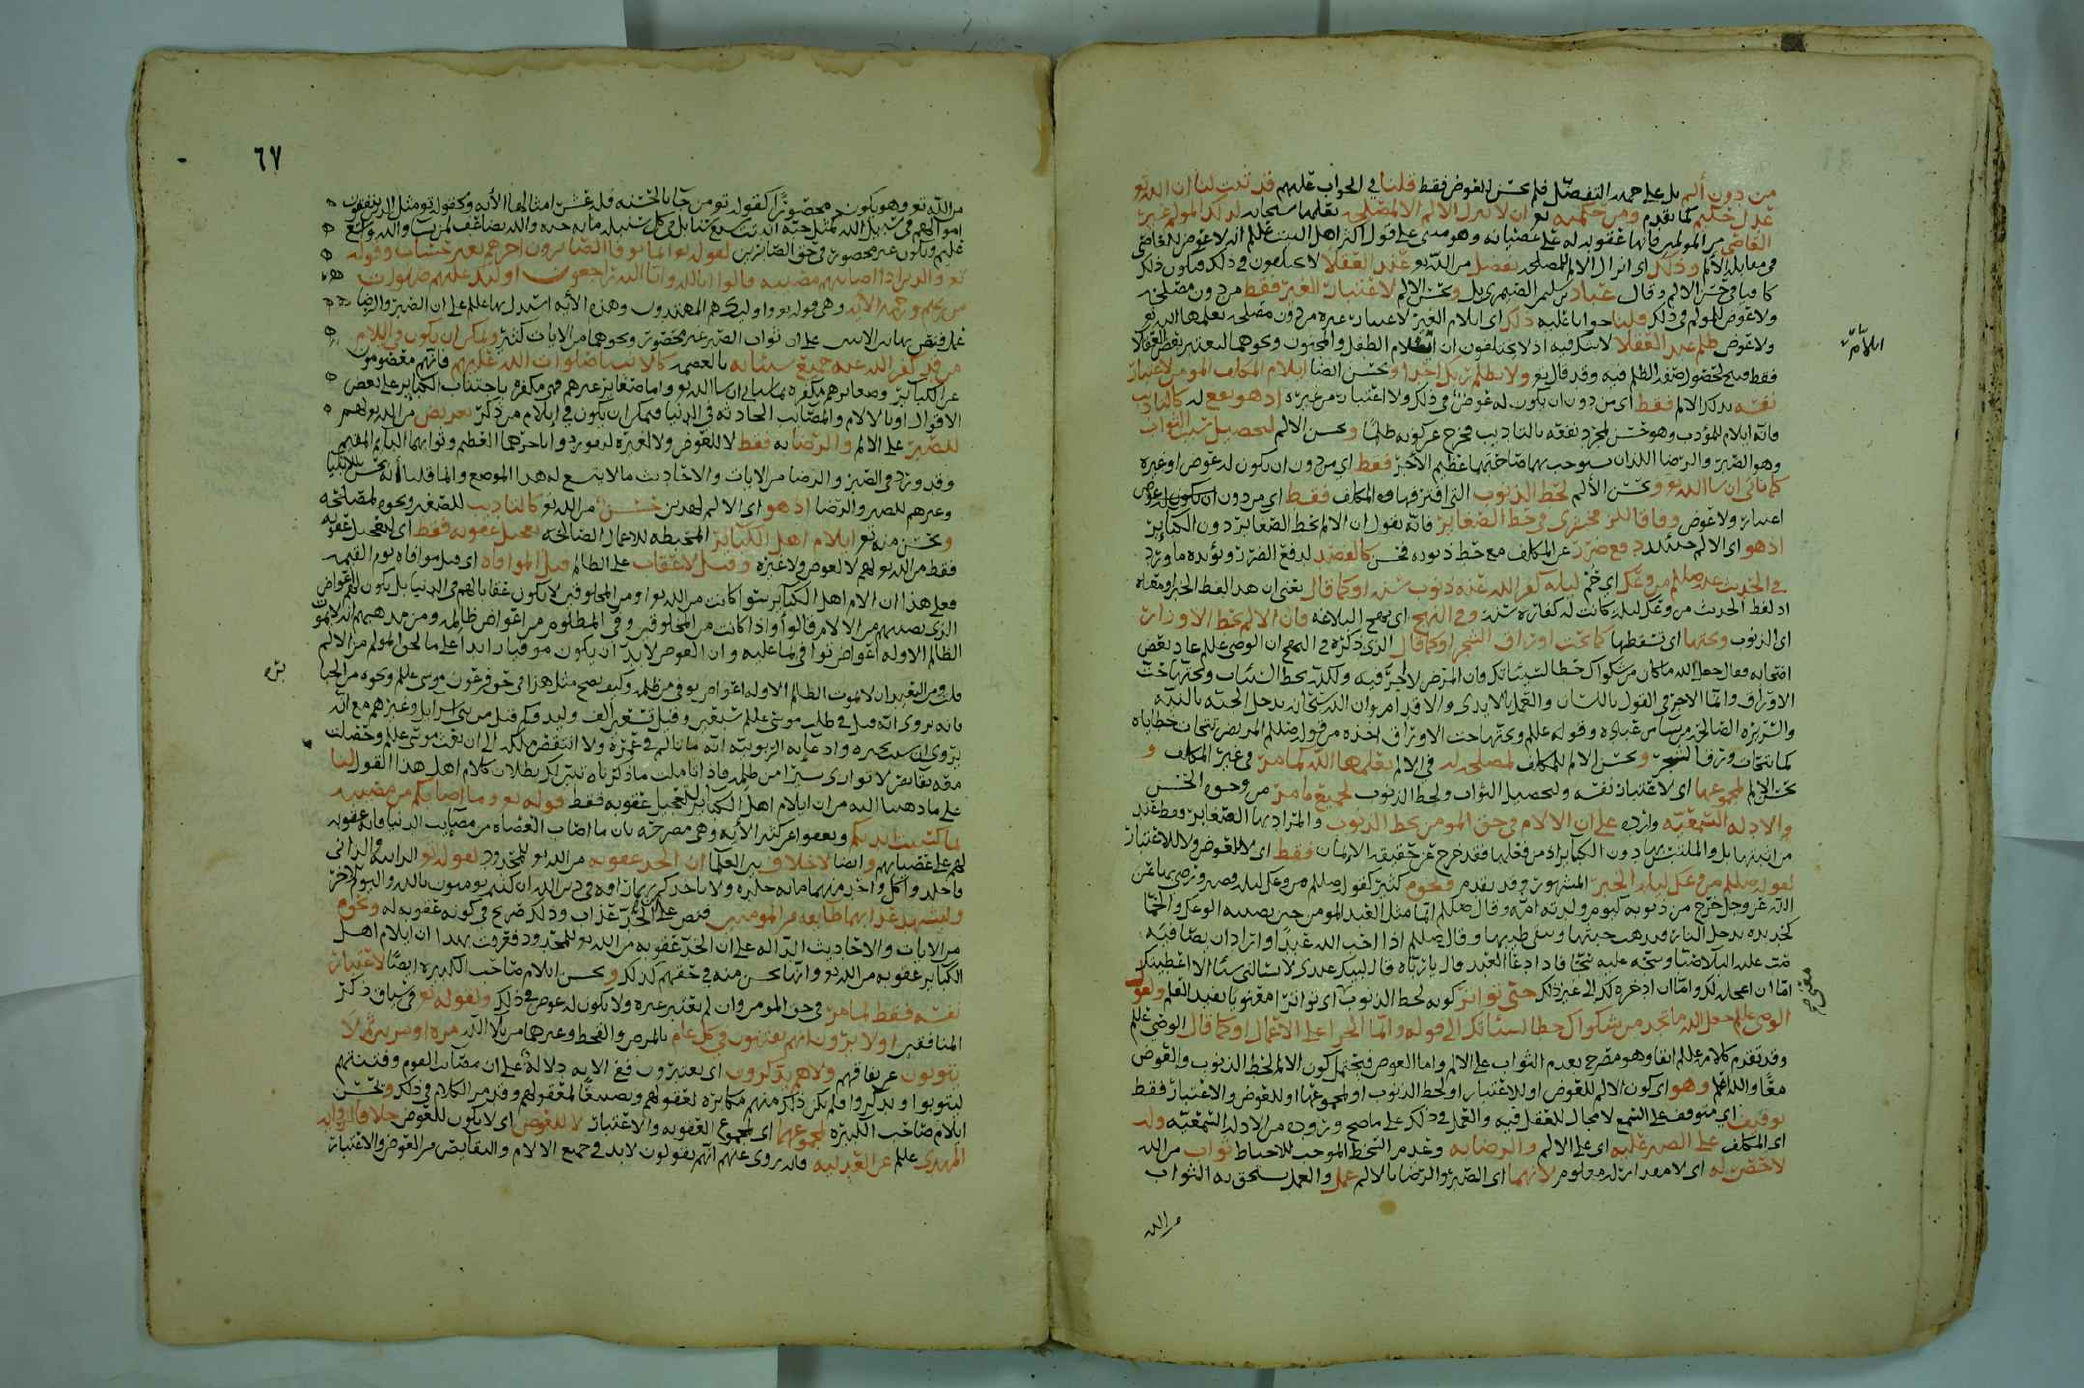 من دون ألم بل على جهة التفضل فلم يحسن للعوض فقط قلنا في الجواب عليهم قد ثبت لنا ان الله تع
عدل حكيم كما تقدم ومن حكمته تع ان لا ينزل الالم الا لمصلحه يعلمها سبحانه لذلك المولم غير
العاصي من المولمين فانها عقوبه له على عصيانه وهو مبني على قول اكثر اهل البيت عللم انه لا عوض للعاصي
في مقابلة الألم وذلك اي انزال الالم للمصلحه تفضل من الله تع عند العقلا لا يختلفون في ذلك فيكون ذلك
كافيا في حسن الالم وقال عباد بن سليمن الضيمري بل ويحسن الالم لاعتبار الغير فقط من دون مصلحه
ولا عوض للمولم في ذلك قلنا جوابا عليه ذلك اي ايلام الغير لاعتبار غيره من دون مصلحه يعلمها الله تع
ولا عوض ظلم عند العقلا لا شك فيه اذ لا يختلفون ان ايلام الطفل والمجنون ونحوهما ليعتبر بعض العقلا
فقط قبيح لحصول صفة الظلم فيه وقد قال تع ولا يظلم ربك احدا ويحسن ايضا ايلام المكلف المومن لاعتبار
نفسه بذلك الالم فقط اي من دون ان يكون له عوض في ذلك ولا اعتبار من غيره اذ هو نفع له كالتاديب
فانه ايلام للمؤدب وهو حسن لمجرد نفعه بالتاديب فخرج عن كونه ظلما ويحسن الالم لتحصيل سبب الثواب
وهو الصبر والرضا اللذان يستوجب بهما صاحبهما عظيم الأجر فقط اي من دون ان يكون له عوض او غيره
كما ياتي ان شا الله تع ويحسن الألم لحط الذنوب التي اقترفها المكلف فقط اي من دون
اعتبار ولا عوض وفاقا للزمخشري في حط الصغاير فانه يقول ان الالم يحط الصغاير دون الكباير
اذ هو اي الالم حينئذ دفع ضرر عن المكلف مع حط ذنوبه فحسن كالفصد لدفع الضرر ويؤيده ما ورد
في الحديث عنه صللم من وعك ليلة كفر الله عنه ذنوب سنه او كما قال يعني ان هذا لفظ الخبر او معناه
اذ لفظ الحديث من وعك ليلة كانت له كفارة سنة وفي النهج اي نهج البلاغه فان الالم يحط الاوزار
اي الذنوب ويحتها اي يسقطها كما تحت اوراق الشجر او كما قال الذي ذكره في النهج ان الوصي عللم عاد بعض
اصحابه فقال جعل الله ما كان من شكواك حطا لسيئاتك فان المرض لا اجر فيه ولكنه يحط السيات ويحتها حت
الاوراق وانما الاجر في القول باللسان والعمل بالايدي والاقدام وان الله سبحانه يدخل الجنه بالنيه
والسريره الصالحه من يشاء من عباده وقوله عللم ويحتها حت الاوراق
كما يتحات ورق الشجر ويحسن الالم للمكلف لمصلحة له في الالم يعلمها الله كما مر في غير المكلف و
يحسن الالم لمجموعها اي لاعتبار نفسه ولتحصيل الثواب ولحط الذنوب لجميع ما مر من وجوه الحسن
والادله السمعيه وارده على ان الالام في حق المومن لحط الذنوب والمراد بها الصغاير
دون الكباير اذ من فعلها فقد خرج عن حقيقة الايمان فقط اي لا للعوض ولا للاعتبار
لقوله صللم من وعك ليلة الخبر المشهور وقد تقدم ونحوه كثير كقوله صللم من وعك ليلة وصبر ورضي بها عن
الله عز وجل خرج من ذنوبه كيوم ولدته امه وقال صللم انما مثل العبد المومن حين يصيبه الوعك والحمى
كحديدة تدخل النار فيذهب خبثها ويبقى طيبها وقال صللم اذا احب الله عبدا او اراد ان يصافيه
صب عليه البلا صبا وسجه عليه سجا فاذا دعا العبد قال يا رباه قال لبيك عبدي لا تسالني شيئا الا اعطيتك
اما ان اعجله لك واما ان ادخره لك الى غير ذلك حتى تواتر كونه لحط الذنوب اي تواترا معنويا يفيد العلم ولقول
الوصي عللم جعل الله ما تجد من شكواك حطا لسيئاتك الى قوله وانما الجزا على الاعمال او كما قال الوصي عللم
وقد تقدم كلامه عللم انفا وهو مصرح بعدم الثواب على الالم واما العوض فيحتمل كون الالم لحط الذنوب والعوض
معا والله اعلم وهو اي كون الالم للعوض او للاعتبار او لحط الذنوب او لمجموعها او للعوض والاعتبار فقط
توقيف اي متوقف على السمع لا مجال للعقل فيه والعمل في ذلك على ما صح وروده من الادلة السمعيه وله
اي المكلف على الصبر عليه اي على الالم والرضا به وعدم السخط الموجب للاحباط ثواب من الله
لا حصر له اي لا مقدار له معلوم لانهما اي الصبر والرضا بالالم عمل والعمل يستحق به الثواب
من الله
ايلام
٦٧
من الله تع وهو يكون محصورا كقوله تع من جا بالحسنه فله عشر امثالها الأيه وكقوله تع مثل الذين ينفقون
اموالهم في سبيل الله كمثل حبه انبتت سبع سنابل في كل سنبله مايه حبه والله يضاعف لمن يشا والله واسع
عليم ويكون غير محصور في حق الصابرين لقوله تع انما يوفى الصابرون اجرهم بغير حساب وقوله
تع والذين اذا اصابتهم مصيبه قالوا انا لله وانا اليه راجعون اوليك عليهم صلوات
من ربهم ورحمه الأيه وهي قوله تع واوليك هم المهتدون وهذه الأيه استدل بها عللم على ان الصبر والرضا
عمل فنص بهاتين الايتين على ان ثواب الصبر غير محصور ونحوهما من الايات كثير ويمكن ان يكون في ايلام
من قد كفر الله عنه جميع سيئاته بالعصمه كالانبيا صلوات الله عليهم فانهم معصومون
عن الكباير وصغايرهم مكفره واما صغاير غيرهم فهي مكفره باجتناب الكباير على بعض
الاقوال او بالالام والمصايب الحادثه في الدنيا فيمكن ان يكون في ايلام من ذكر تعريض من الله تع لهم
للصبر على الالم والرضا به فقط لا للعوض ولا لغيره ليفوزوا باجرهما العظيم وثوابهما الدايم المقيم
وقد ورد في الصبر والرضا من الايات والاحاديث ما لا يتسع له هذا الموضع وانما قلنا انه يحسن للانبيا
وغيرهم للصبر والرضا اذ هو اي الالم لهذين حسن من الله تع كالتاديب للصغير ونحوه لمصلحه
ويحسن منه تع ايلام اهل الكباير المحبطه للاعمال الصالحه تعجيل عقوبه فقط اي لتعجيل عقوبه
فقط من الله تع لهم لا لعوض ولا غيره وقيل لا عقاب على الظالم قبل الموافاه اي قبل موافاة يوم القيمه
فعلى هذا ان الام اهل الكباير سوا كانت من الله تع او من المخلوقين لا يكون عقابا لهم في الدنيا بل يكون للعواض
الذي يصيبهم من الالام قالوا واذا كانت من المخلوقين وفي المظلوم من اعواض ظالمه ومن مذهبهم انه لا يموت
الظالم الا وله اعواض توافي ما عليه وان العوض لا بد ان يكون موفيا زايدا على ما لحق المولم من الالم
قلت ومن البعيد ان لا يموت الظالم الا وله اعواض يوفي من ظلمه وكيف يصح مثل هذا في حق فرعون موسى عللم ونحوه من الجبا
بره
فانه يروى انه قتل في طلب موسى عللم سبعين وقيل تسعين ألف وليد وكم قتل من بني اسرايل وغيرهم مع انه
يروى ان سبب تجبره وادعايه الربوبيه انه ما تالم في عمره ولا انتقض ملكه الى ان بعث موسى عللم
على ما ذهبنا اليه من ان ايلام اهل الكباير لتعجيل عقوبه فقط قوله تع وما اصابكم من مصيبه
فبما كسبت ايديكم ويعفو عن كثير الأيه وهي مصرحه بان ما اصاب العصاه من مصايب الدنيا فانه عقوبه
لهم على عصيانهم وايضا لا خلاف بين العلما ان الحد عقوبه من الله تع للمحدود لقوله تع الزانيه والزاني
فاجلدوا كل واحد منهما مايه جلده ولا تاخذكم بهما رافه في دين الله ان كنتم تومنون بالله واليوم الاخر
وليشهد عذابهما طايفه من المومنين فنص على ان الحد عذاب وذلك صريح في كونه عقوبه له ونحوه
من الايات والاحاديث الداله على ان الحد عقوبه من الله تع للمحدود فعرفت بهذا ان ايلام اهل
الكباير عقوبه من الله تع وانها تحسن منه في حقهم كذلك ويحسن ايلام صاحب الكبيره ايضا لاعتبار
نفسه فقط لما مر في حق المومن وان لم يعتبر غيره ولا يكون له عوض في ذلك ولقوله تع في سياق ذكر
المنافقين اولا يرون انهم يفتنون في كل عام بالمرض والقحط وغيرهما من بلا الله مره او مرتين ثم لا
يتوبون عن نفاقهم ولا هم يذكرون اي يعتبرون ففي الايه دلالة على ان مصايب القوم وفتنتهم
ليتوبوا ويذكروا فلم يكن ذلك منهم مكابره لعقولهم
ايلام صاحب الكبيره لمجموعهما اي لمجموع العقوبه والاعتبار لا للعوض اي لا يكون للعوض خلافا لرواية
المهدي عللم عن العدليه فانه روى عنهم انهم يقولون لا بد في جميع الالام والنقايص من العوض والاعتبار